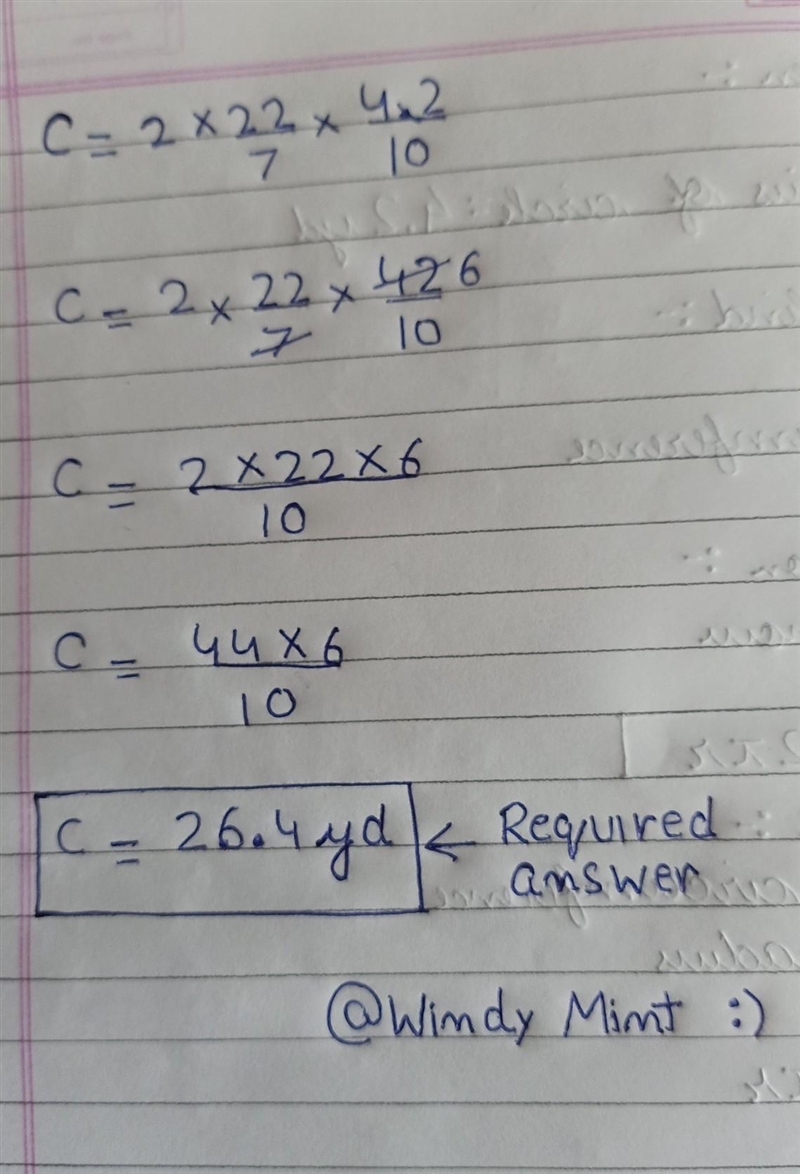 C = 2 × 22/7 × 4.2/10
C = 2 × 22/7 × 42 6/10
C = 2 × 22 × 6/10
C = 44 × 6/10
C = 26.4 yd ← Required
answer
@Windy Mint :)